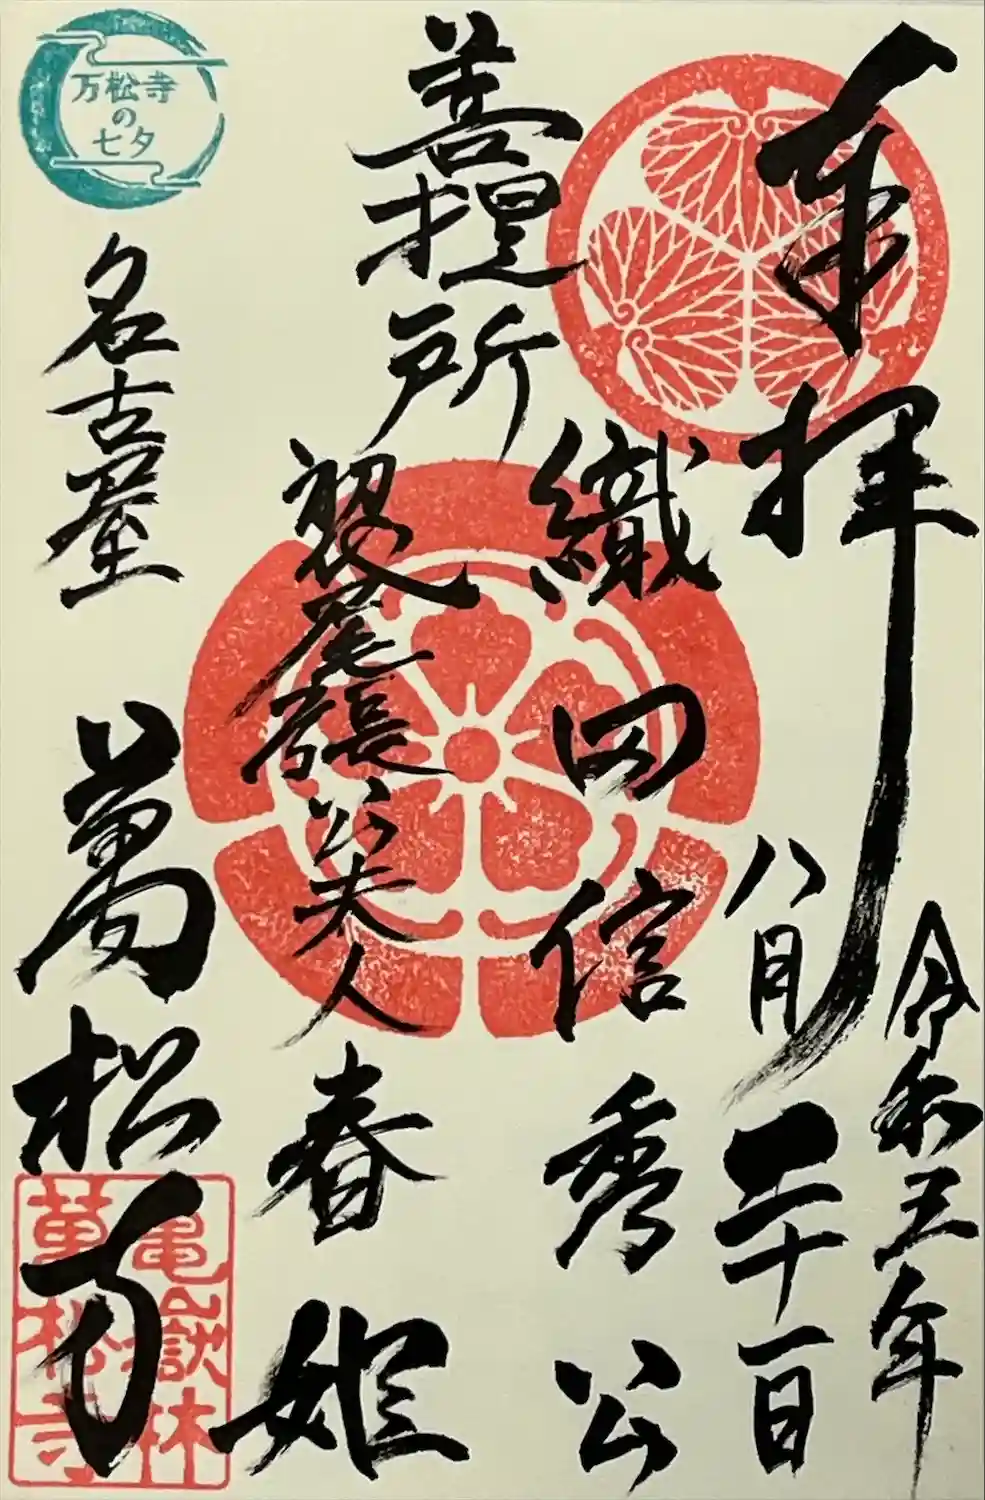 奉拝
令和五年
八月二十一日
菩提所
織田信秀公
初代尾張公夫人
春姫
名古屋
萬松寺
万松寺
の
七夕
亀嶽林
萬松寺